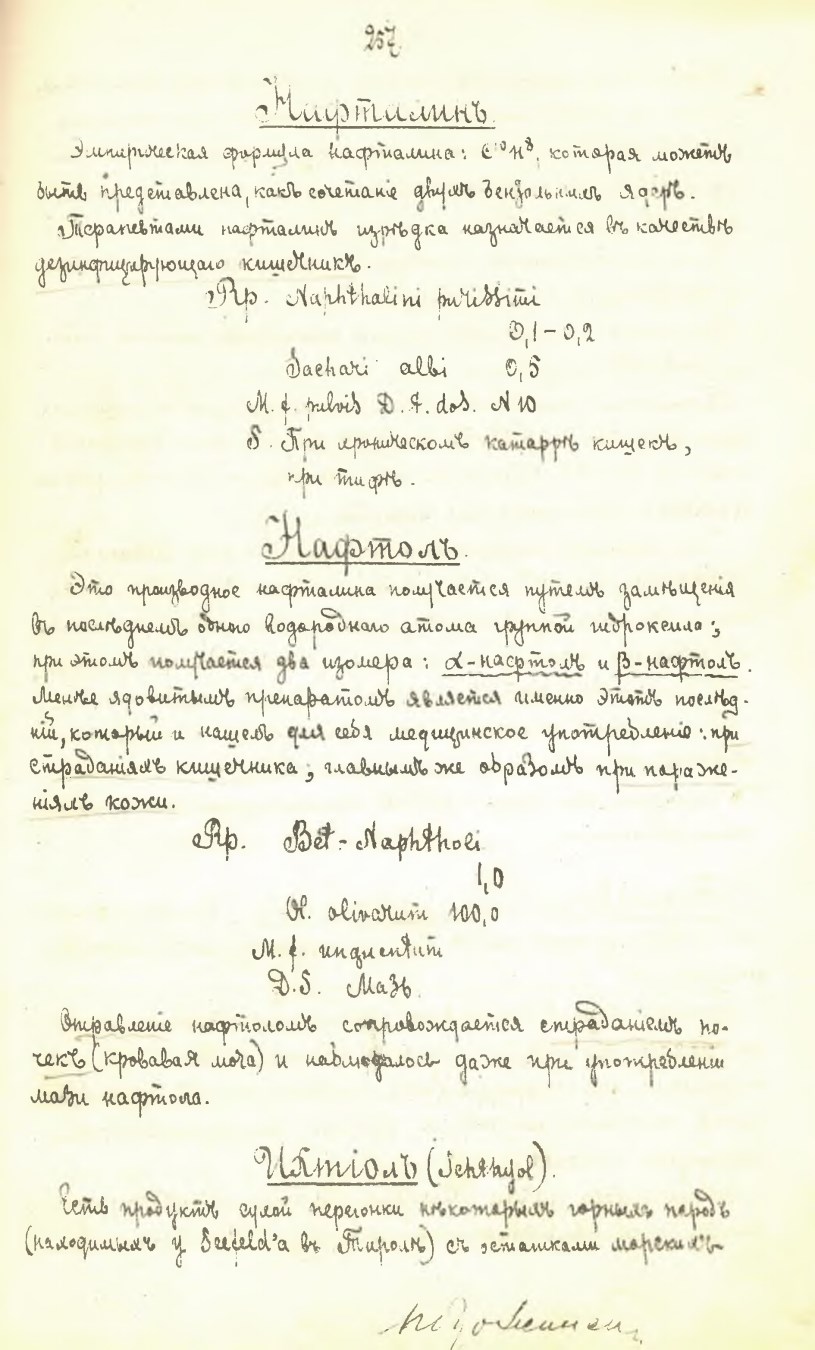 257
Нафталинъ.
Эмпирическая формула нафталина: C¹⁰H⁸, которая можетъ
быть представлена, какъ сочетаніе двухъ бензольныхъ ядеръ.
Терапевтами нафталинъ изрѣдка назначается въ качествѣ
дезинфицирующаго кишечникъ.
Rp. Naphthalini purissimi
0,1 – 0,2
Sachari albi 0,5
M. f. pulvis D. t. dos. N 10
S. При хроническомъ катаррѣ кишекъ,
при тифѣ.
Нафтолъ.
Это производное нафталина получается путемъ замѣщенія
въ послѣднемъ одного водороднаго атома группой гидроксила;
при этомъ получается два изомера: α-нафтолъ и β-нафтолъ.
Менѣе ядовитымъ препаратомъ является именно этотъ послѣд-
ній, который и нашелъ для себя медицинское употребленіе: при
страданіяхъ кишечника, главнымъ же образомъ при пораже-
ніяхъ кожи.
Rp. Bet-Naphtholi
1,0
Ol. olivarum 100,0
M. f. unguentum
D.S. Мазь
Отравленіе нафтоломъ сопровождается страданіемъ по-
чекъ (кровавая моча) и наблюдалось даже при употребленіи
мази нафтола.
Ихтіолъ (Ichthyol).
Есть продуктъ сухой перегонки нѣкоторыхъ горныхъ породъ
(находимыхъ у Seefeld'а въ Тиролѣ) съ остатками морскихъ